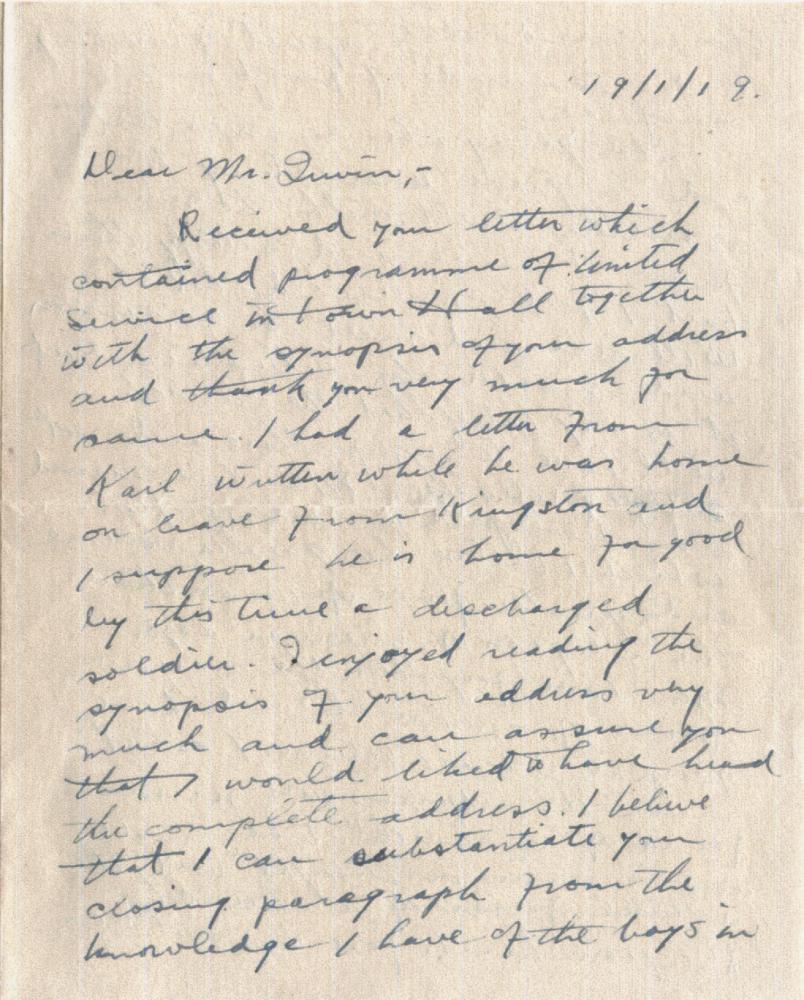 19/1/19.
Dear Mr. Irwin,-
Received your letter which
contained programme of United
Service in Town Hall together
with the synopsis of your address
and thank you very much for
same. I had a letter from
Karl written while he was home
on leave from Kingston and
I suppose he is home for good
by this time a discharged
soldier. I enjoyed reading the
synopsis of your address very
much and can assure you
that I would liked to have heard
the complete address. I believe
that I can substantiate your
closing paragraph from the
knowledge I have of the boys in